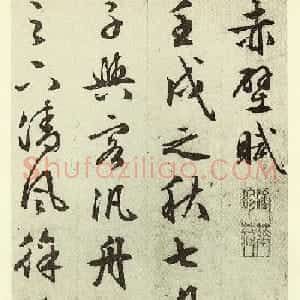 赤壁賦
壬戌之秋七月
子與客汎舟
之下清風徐
Shufaziliao.com